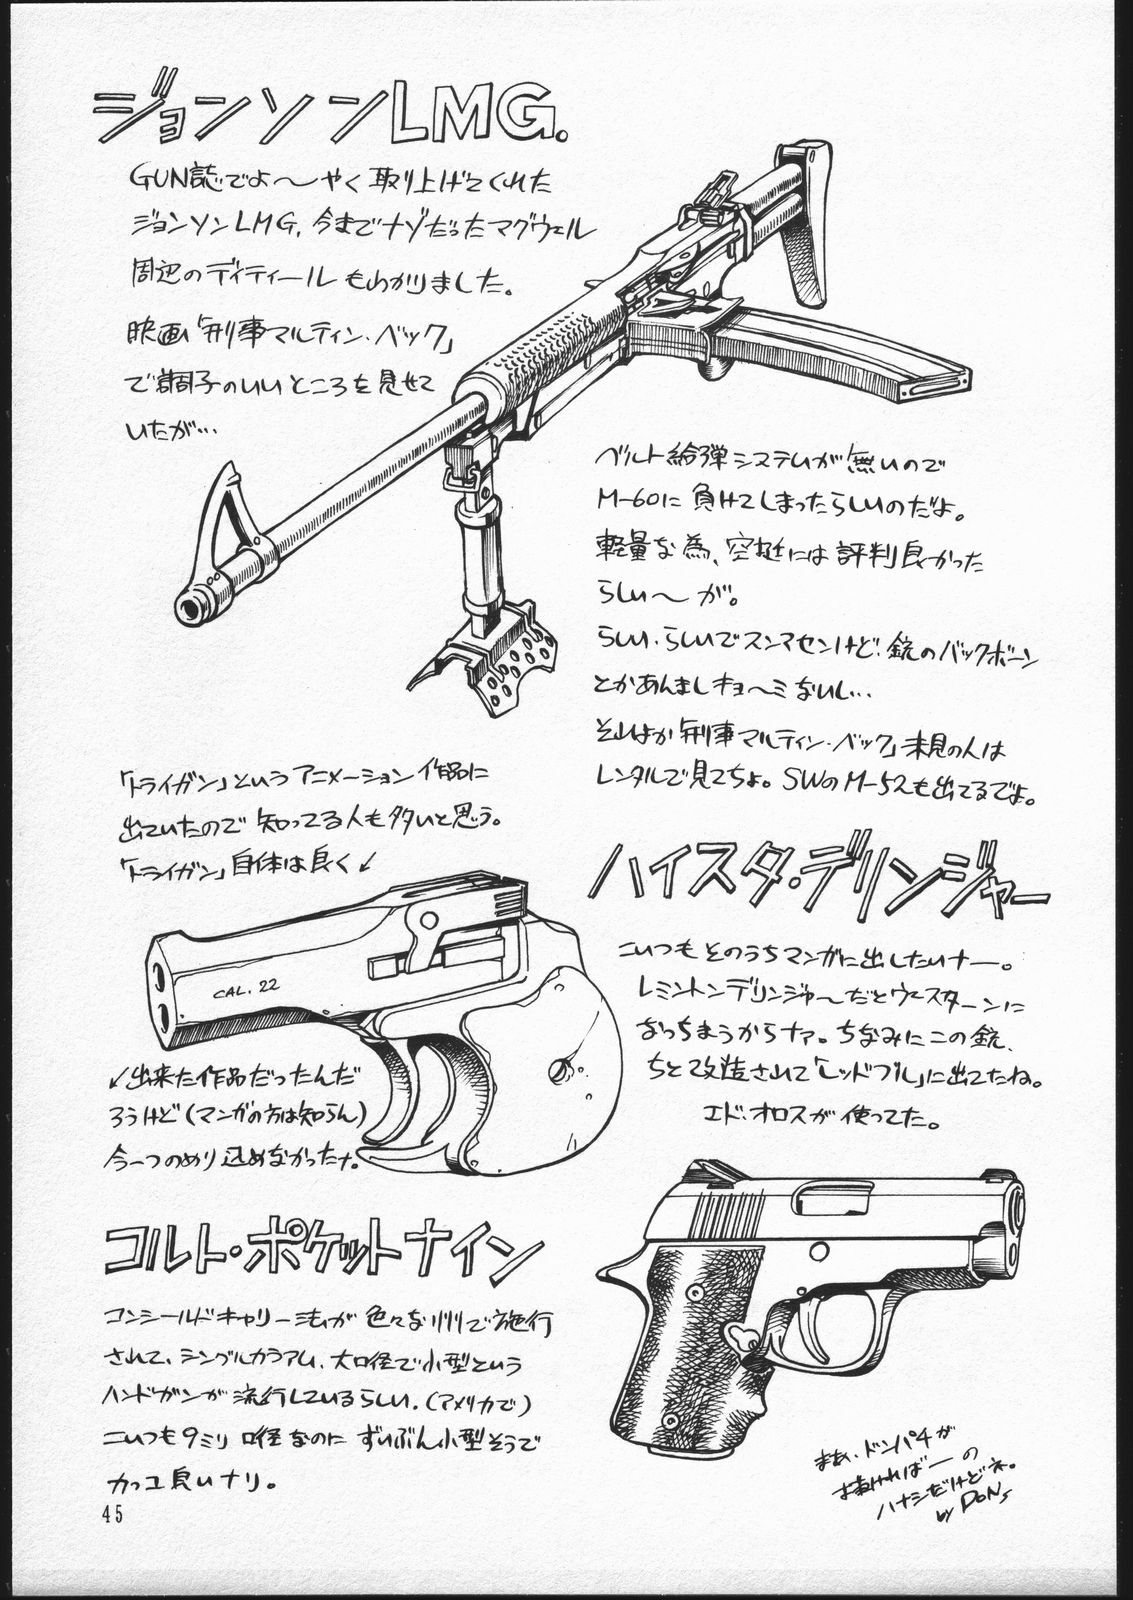 ジョンソンLMG.
GUN誌でよ〜やく取り上げてくれた
ジョンソンLMG, 今までナゾだったマグウェル
周辺のディティールもわかりました。
映画「刑事マルティン・ベック」
で調子のいいところを見せて
いたが…
ベルト給弾システムが無いので
M-60に負けてしまったらしいのだよ。
軽量な為、空挺には評判良かった
らしい〜が。
らしい、らしいでスンマセンけど、銃のバックボーン
とかあんましキョーミないし…
そしばか「刑事マルティン・ベック」未見の人は
レンタルで見てちょ。SWのM-52も出てるでよ。
「トライガン」というアニメーション作品に
出ていたので知ってる人も多いと思う。
「トライガン」自体は良く↙
CAL. 22
↙出来た作品だったんだ
ろうけど(マンガの方は知らん)
今一つのめり込めなかったナ。
ハイスタ・デリンジャー
こいつもそのうちマンガに出したいナー。
レミントンデリンジャ〜だとウエスターンに
なっちまうからナァ。ちなみにこの銃、
ちと改造されて「レッドブル」に出てたね。
エド・オロスが使ってた。
コルト・ポケットナイン
コンシールドキャリー法が色々な州で施行
されて、シングルカラアム、大口径で小型という
ハンドガンが流行しているらしい。(アメリカで)
こいつも9ミリ口径なのにずいぶん小型そうで
カッコ良いナリ。
まあ、ドンパチが
描ければ一の
ハナシだけどネ。
by DONs
45